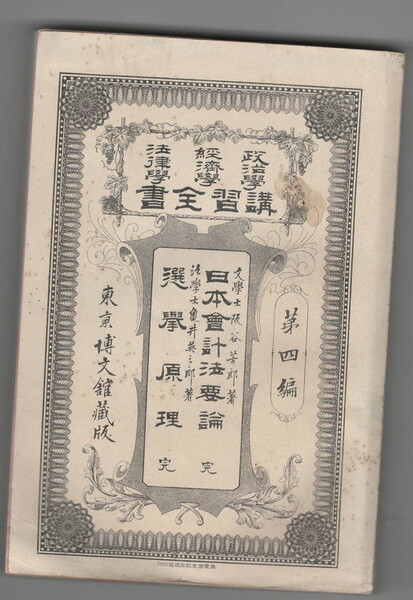 政治學
經濟學
法律學
講習全書
第四編
文學士阪谷芳郎著
日本會計法要論 完
法學士龜井英三郎著
選擧原理 完
東京博文館藏版